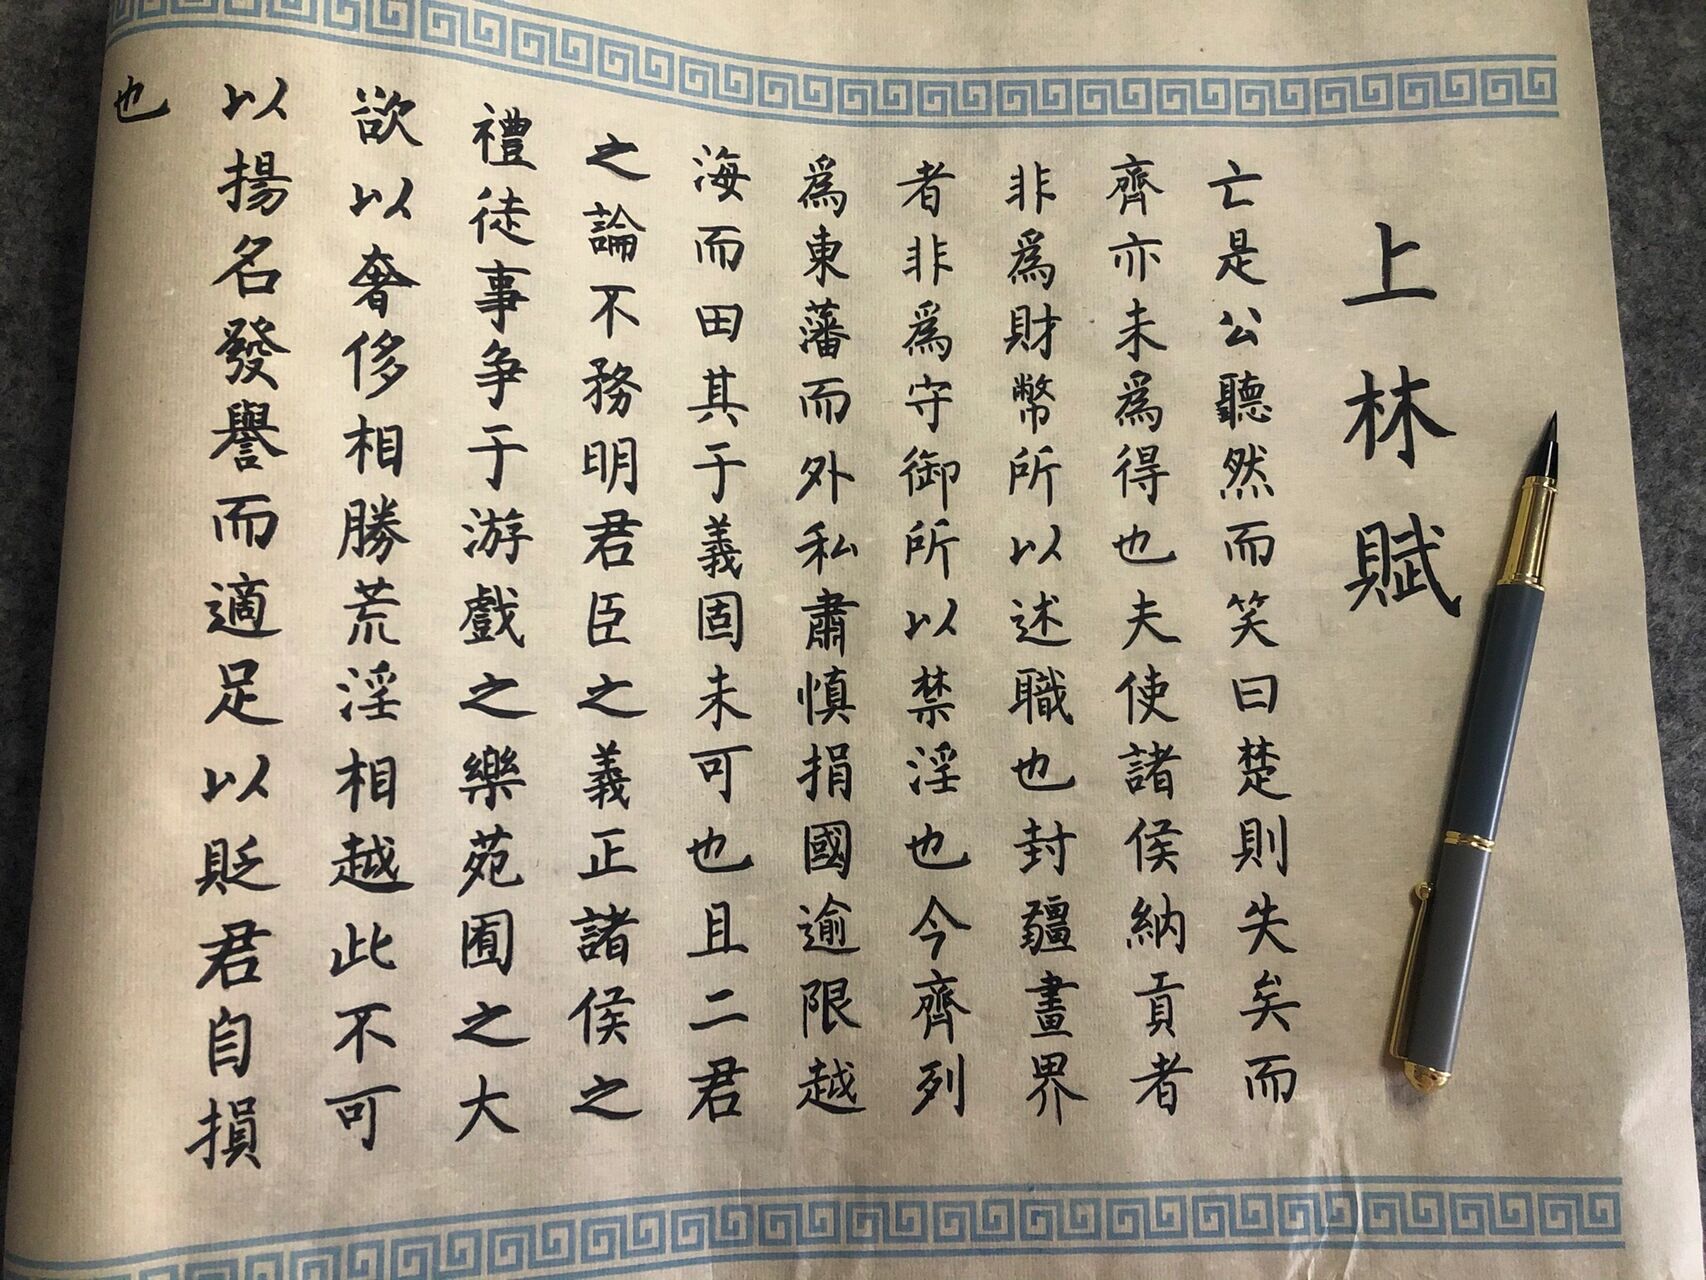 上林賦
亡是公聽然而笑曰楚則失矣而
齊亦未為得也夫使諸侯納貢者
非為財幣所以述職也封疆畫界
者非為守御所以禁淫也今齊列
為東藩而外私肅慎捐國逾限越
海而田其于義固未可也且二君
之論不務明君臣之義正諸侯之
禮徒事争于游戲之樂苑囿之大
欲以奢侈相勝荒淫相越此不可
以揚名發譽而適足以貶君自損
也